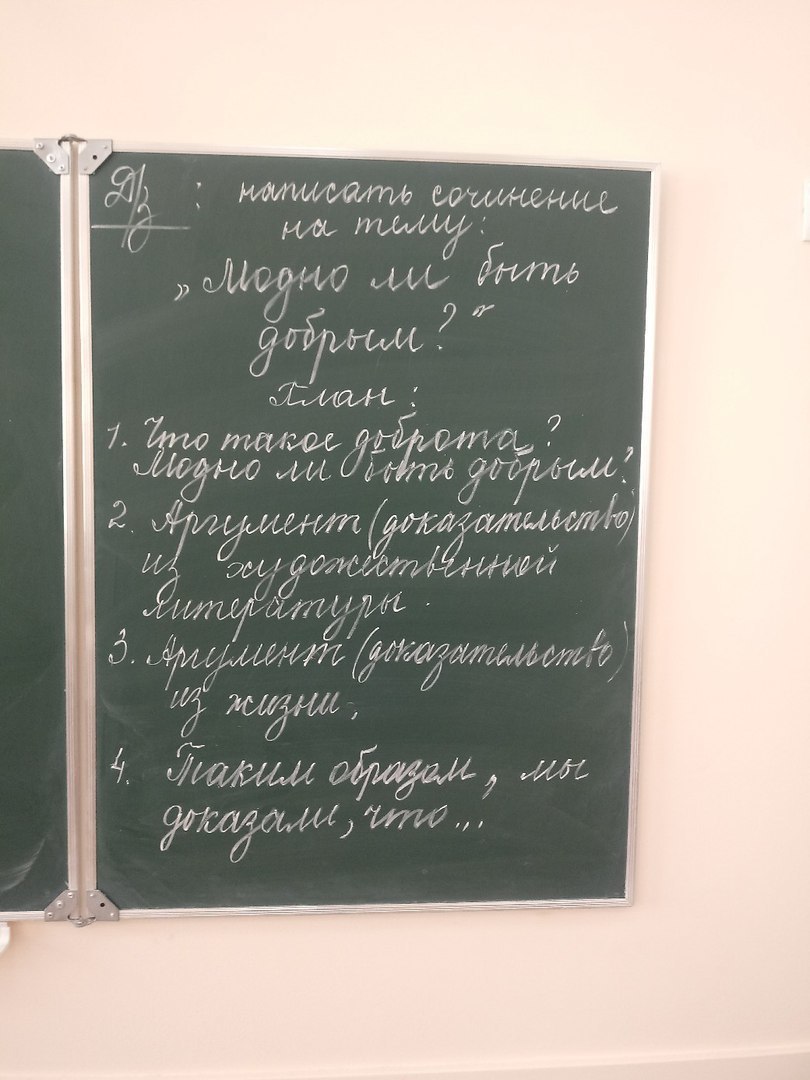 ДЗ : написать сочинение
на тему:
„Модно ли быть
добрым?“
План:
1. Что такое доброта?
Модно ли быть добрым?
2. Аргумент (доказательство)
из художественной
литературы.
3. Аргумент (доказательство)
из жизни.
4. Таким образом, мы
доказали, что...